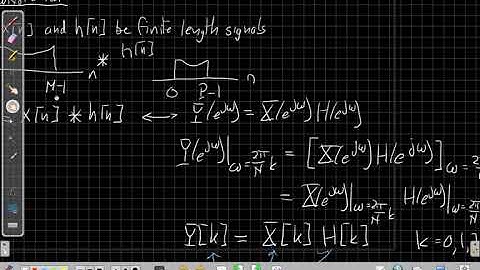 x[n] and h[n] be finite length signals
* h[n]
n n
M-1 0 P-1
x[n] * h[n] ↔ Y(e^jω) = X(e^jω) H(e^jω)
Y(e^jω)|ω=2π/N k = [X(e^jω) H(e^jω)]ω=2π/N
= X(e^jω)|ω=2π/N k H(e^jω)|ω=2π/N
Y[k] = X[k] H[k] k=0,1